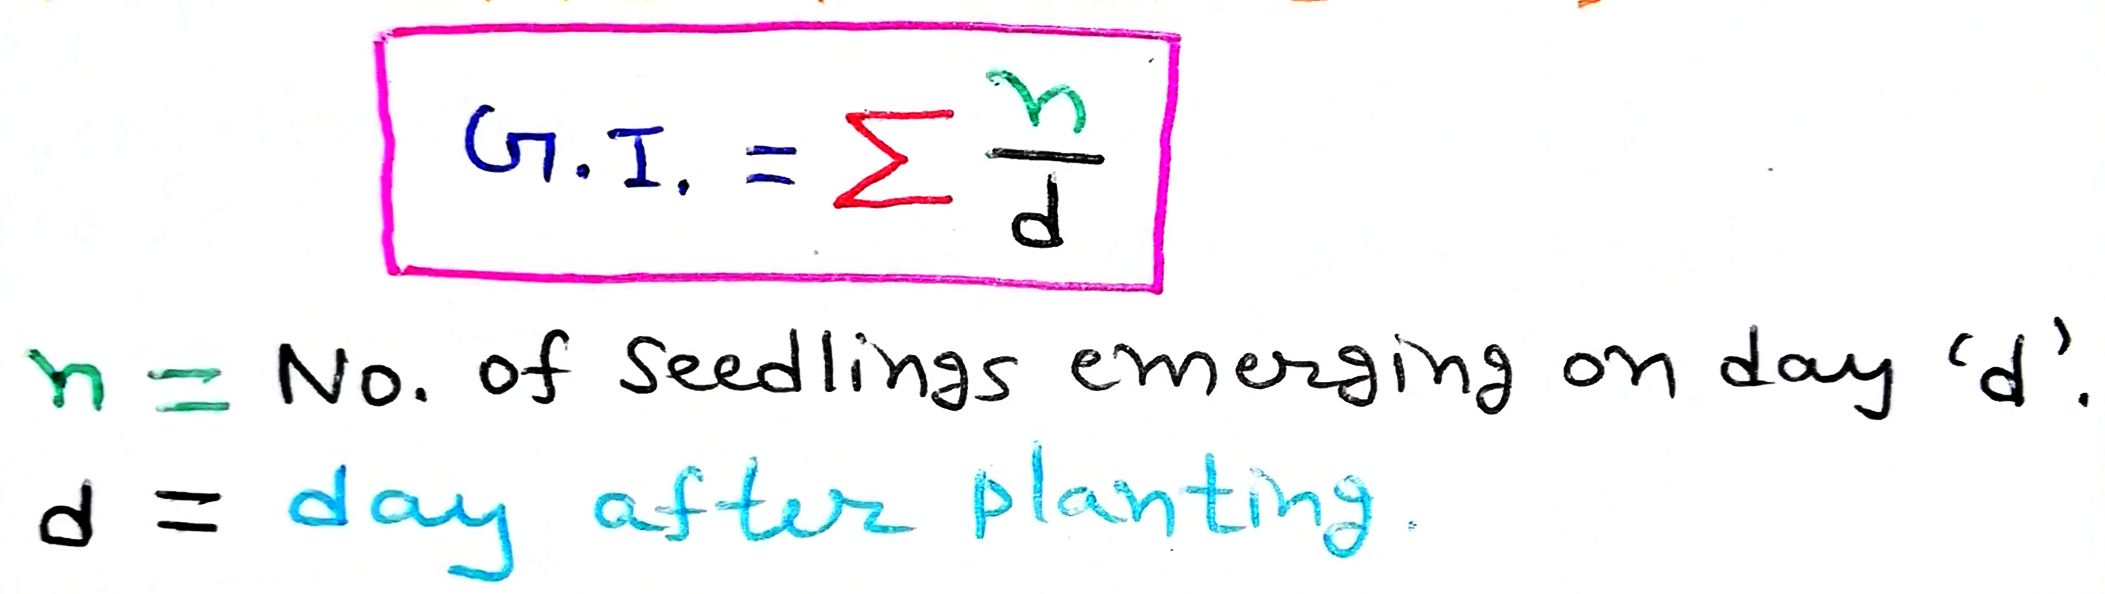 G.I. = Σ n/d
n = No. of Seedlings emerging on day 'd'.
d = day after planting.